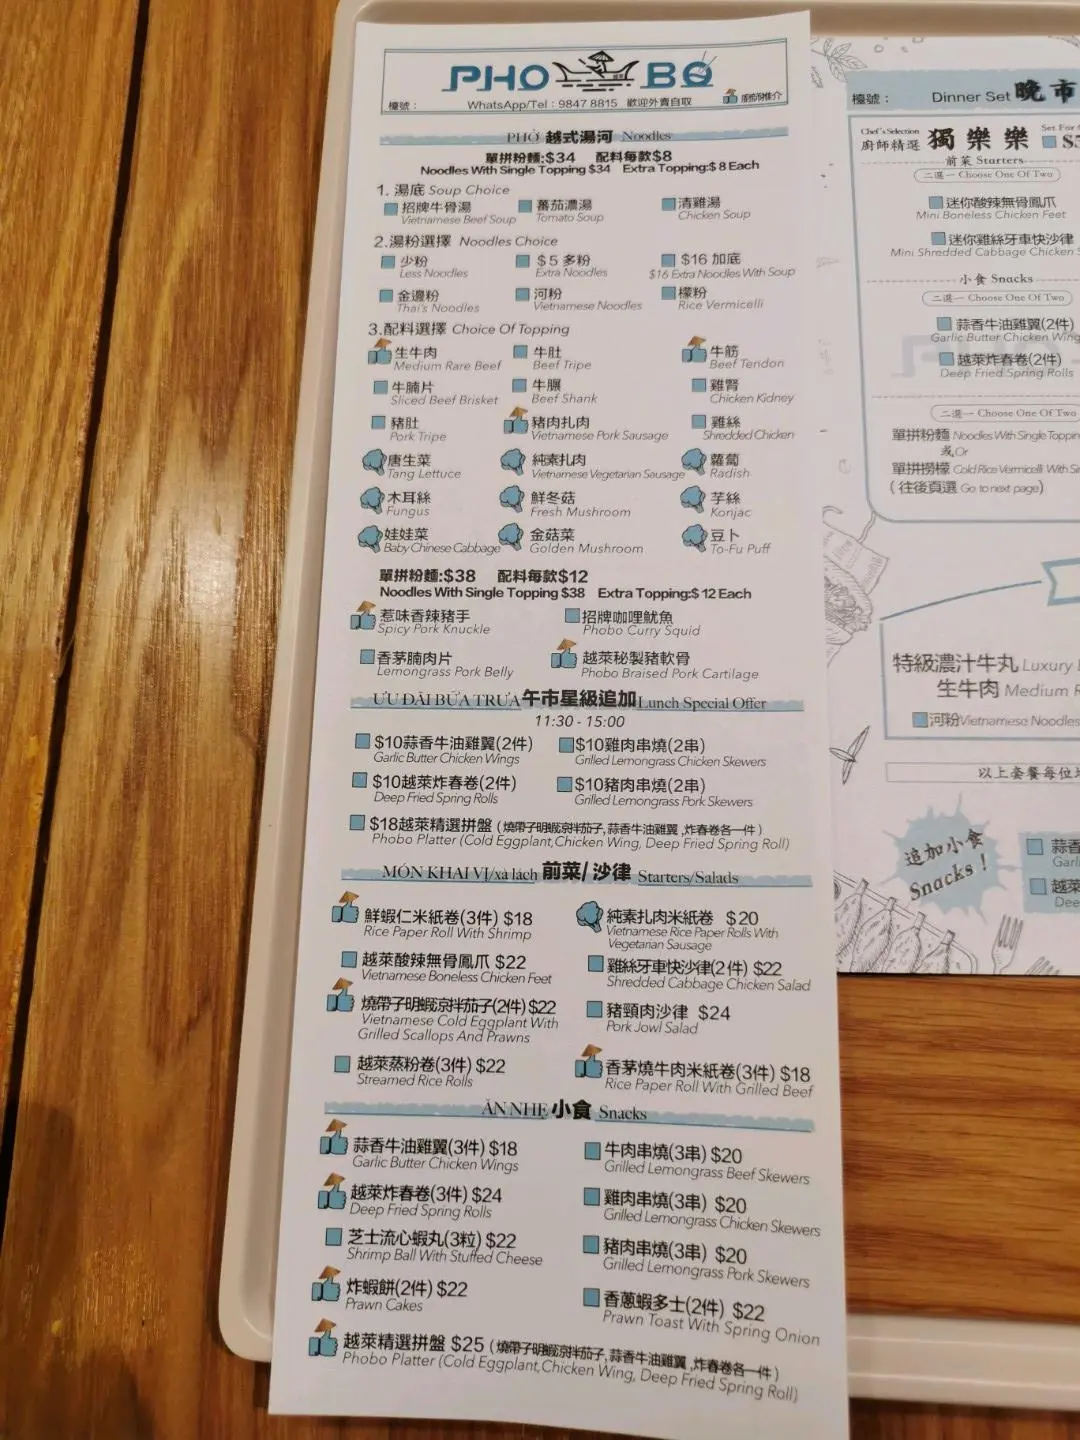 PHO BO
檯號： WhatsApp/Tel：9847 8815 歡迎外賣自取
PHỞ 越式湯河 Noodles
單拼粉麵:$34 配料每款$8
Noodles With Single Topping $34 Extra Topping:$ 8 Each
1. 湯底 Soup Choice
招牌牛骨湯 蕃茄濃湯 清雞湯
Vietnamese Beef Soup Tomato Soup Chicken Soup
2.湯粉選擇 Noodles Choice
少粉 $5多粉 $16 加底
Less Noodles Extra Noodles $16 Extra Noodles With Soup
金邊粉 河粉 檬粉
Thai's Noodles Vietnamese Noodles Rice Vermicelli
3.配料選擇 Choice Of Topping
生牛肉 牛肚 牛筋
Medium Rare Beef Beef Tripe Beef Tendon
牛腩片 牛𦟌 雞腎
Sliced Beef Brisket Beef Shank Chicken Kidney
豬肚 豬肉扎肉 雞絲
Pork Tripe Vietnamese Pork Sausage Shredded Chicken
唐生菜 純素扎肉 蘿蔔
Tang Lettuce Vietnamese Vegetarian Sausage Radish
木耳絲 鮮冬菇 芋絲
Fungus Fresh Mushroom Konjac
娃娃菜 金菇菜 豆卜
Baby Chinese Cabbage Golden Mushroom To-Fu Puff
單拼粉麵:$38 配料每款$12
Noodles With Single Topping $38 Extra Topping:$ 12 Each
惹味香辣豬手 招牌咖哩魷魚
Spicy Pork Knuckle Phobo Curry Squid
香茅腩肉片 越萊秘製豬軟骨
Lemongrass Pork Belly Phobo Braised Pork Cartilage
ƯU ĐÃI BỮA TRƯA 午市星級追加 Lunch Special Offer
11:30 - 15:00
$10蒜香牛油雞翼(2件) $10雞肉串燒(2串)
Garlic Butter Chicken Wings Grilled Lemongrass Chicken Skewers
$10越萊炸春卷(2件) $10豬肉串燒(2串)
Deep Fried Spring Rolls Grilled Lemongrass Pork Skewers
$18越萊精選拼盤 ( 燒帶子明蝦涼拌茄子, 蒜香牛油雞翼 ,炸春卷各一件 )
Phobo Platter (Cold Eggplant,Chicken Wing, Deep Fried Spring Roll)
MÓN KHAI VỊ/xà lách 前菜/ 沙律 Starters/Salads
鮮蝦仁米紙卷(3件) $18 純素扎肉米紙卷 $20
Rice Paper Roll With Shrimp Vietnamese Rice Paper Rolls With
Vegetarian Sausage
越萊酸辣無骨鳳爪 $22 雞絲牙車快沙律(2件) $22
Vietnamese Boneless Chicken Feet Shredded Cabbage Chicken Salad
燒帶子明蝦涼拌茄子(2件) $22 豬頸肉沙律 $24
Vietnamese Cold Eggplant With Pork Jowl Salad
Grilled Scallops And Prawns
越萊蒸粉卷(3件) $22 香茅燒牛肉米紙卷(3件) $18
Streamed Rice Rolls Rice Paper Roll With Grilled Beef
ĂN NHẸ 小食 Snacks
蒜香牛油雞翼(3件) $18 牛肉串燒(3串) $20
Garlic Butter Chicken Wings Grilled Lemongrass Beef Skewers
越萊炸春卷(3件) $24 雞肉串燒(3串) $20
Deep Fried Spring Rolls Grilled Lemongrass Chicken Skewers
芝士流心蝦丸(3粒) $22 豬肉串燒(3串) $20
Shrimp Ball With Stuffed Cheese Grilled Lemongrass Pork Skewers
炸蝦餅(2件) $22 香蔥蝦多士(2件) $22
Prawn Cakes Prawn Toast With Spring Onion
越萊精選拼盤 $25 ( 燒帶子明蝦涼拌茄子, 蒜香牛油雞翼 ,炸春卷各一件 )
Phobo Platter (Cold Eggplant,Chicken Wing, Deep Fried Spring Roll)
檯號： Dinner Set 晚市
Chef's Selection
廚師精選 獨樂樂 Set For
前菜 Starters
二選一 Choose One Of Two
迷你酸辣無骨鳳爪
Mini Boneless Chicken Feet
迷你雞絲牙車快沙律
Mini Shredded Cabbage Chicken
小食 Snacks
二選一 Choose One Of Two
蒜香牛油雞翼(2件)
Garlic Butter Chicken Wing
越萊炸春卷(2件)
Deep Fried Spring Rolls
二選一 Choose One Of Two
單拼粉麵 Noodles With Single Topping
或 Or
單拼撈檬 Cold Rice Vermicelli With
( 往後頁選 Go to next page)
特級濃汁牛丸 Luxury
生牛肉 Medium
河粉Vietnamese Noodles
以上套餐每位
追加小食
Snacks !
蒜香
越萊